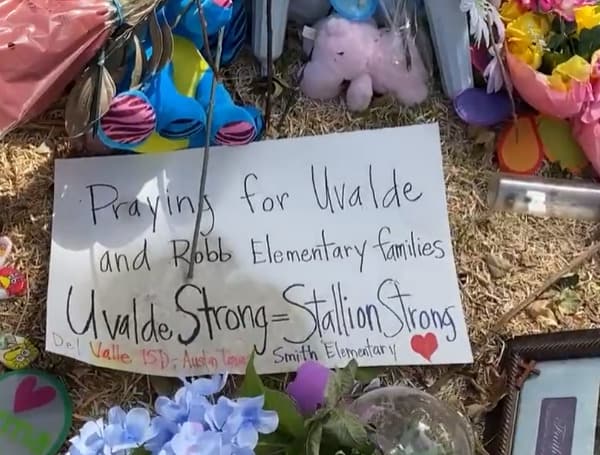 Praying for Uvalde
and Robb Elementary families
Uvalde Strong = Stallion Strong
Del Valle ISD - Austin Texas
Smith Elementary